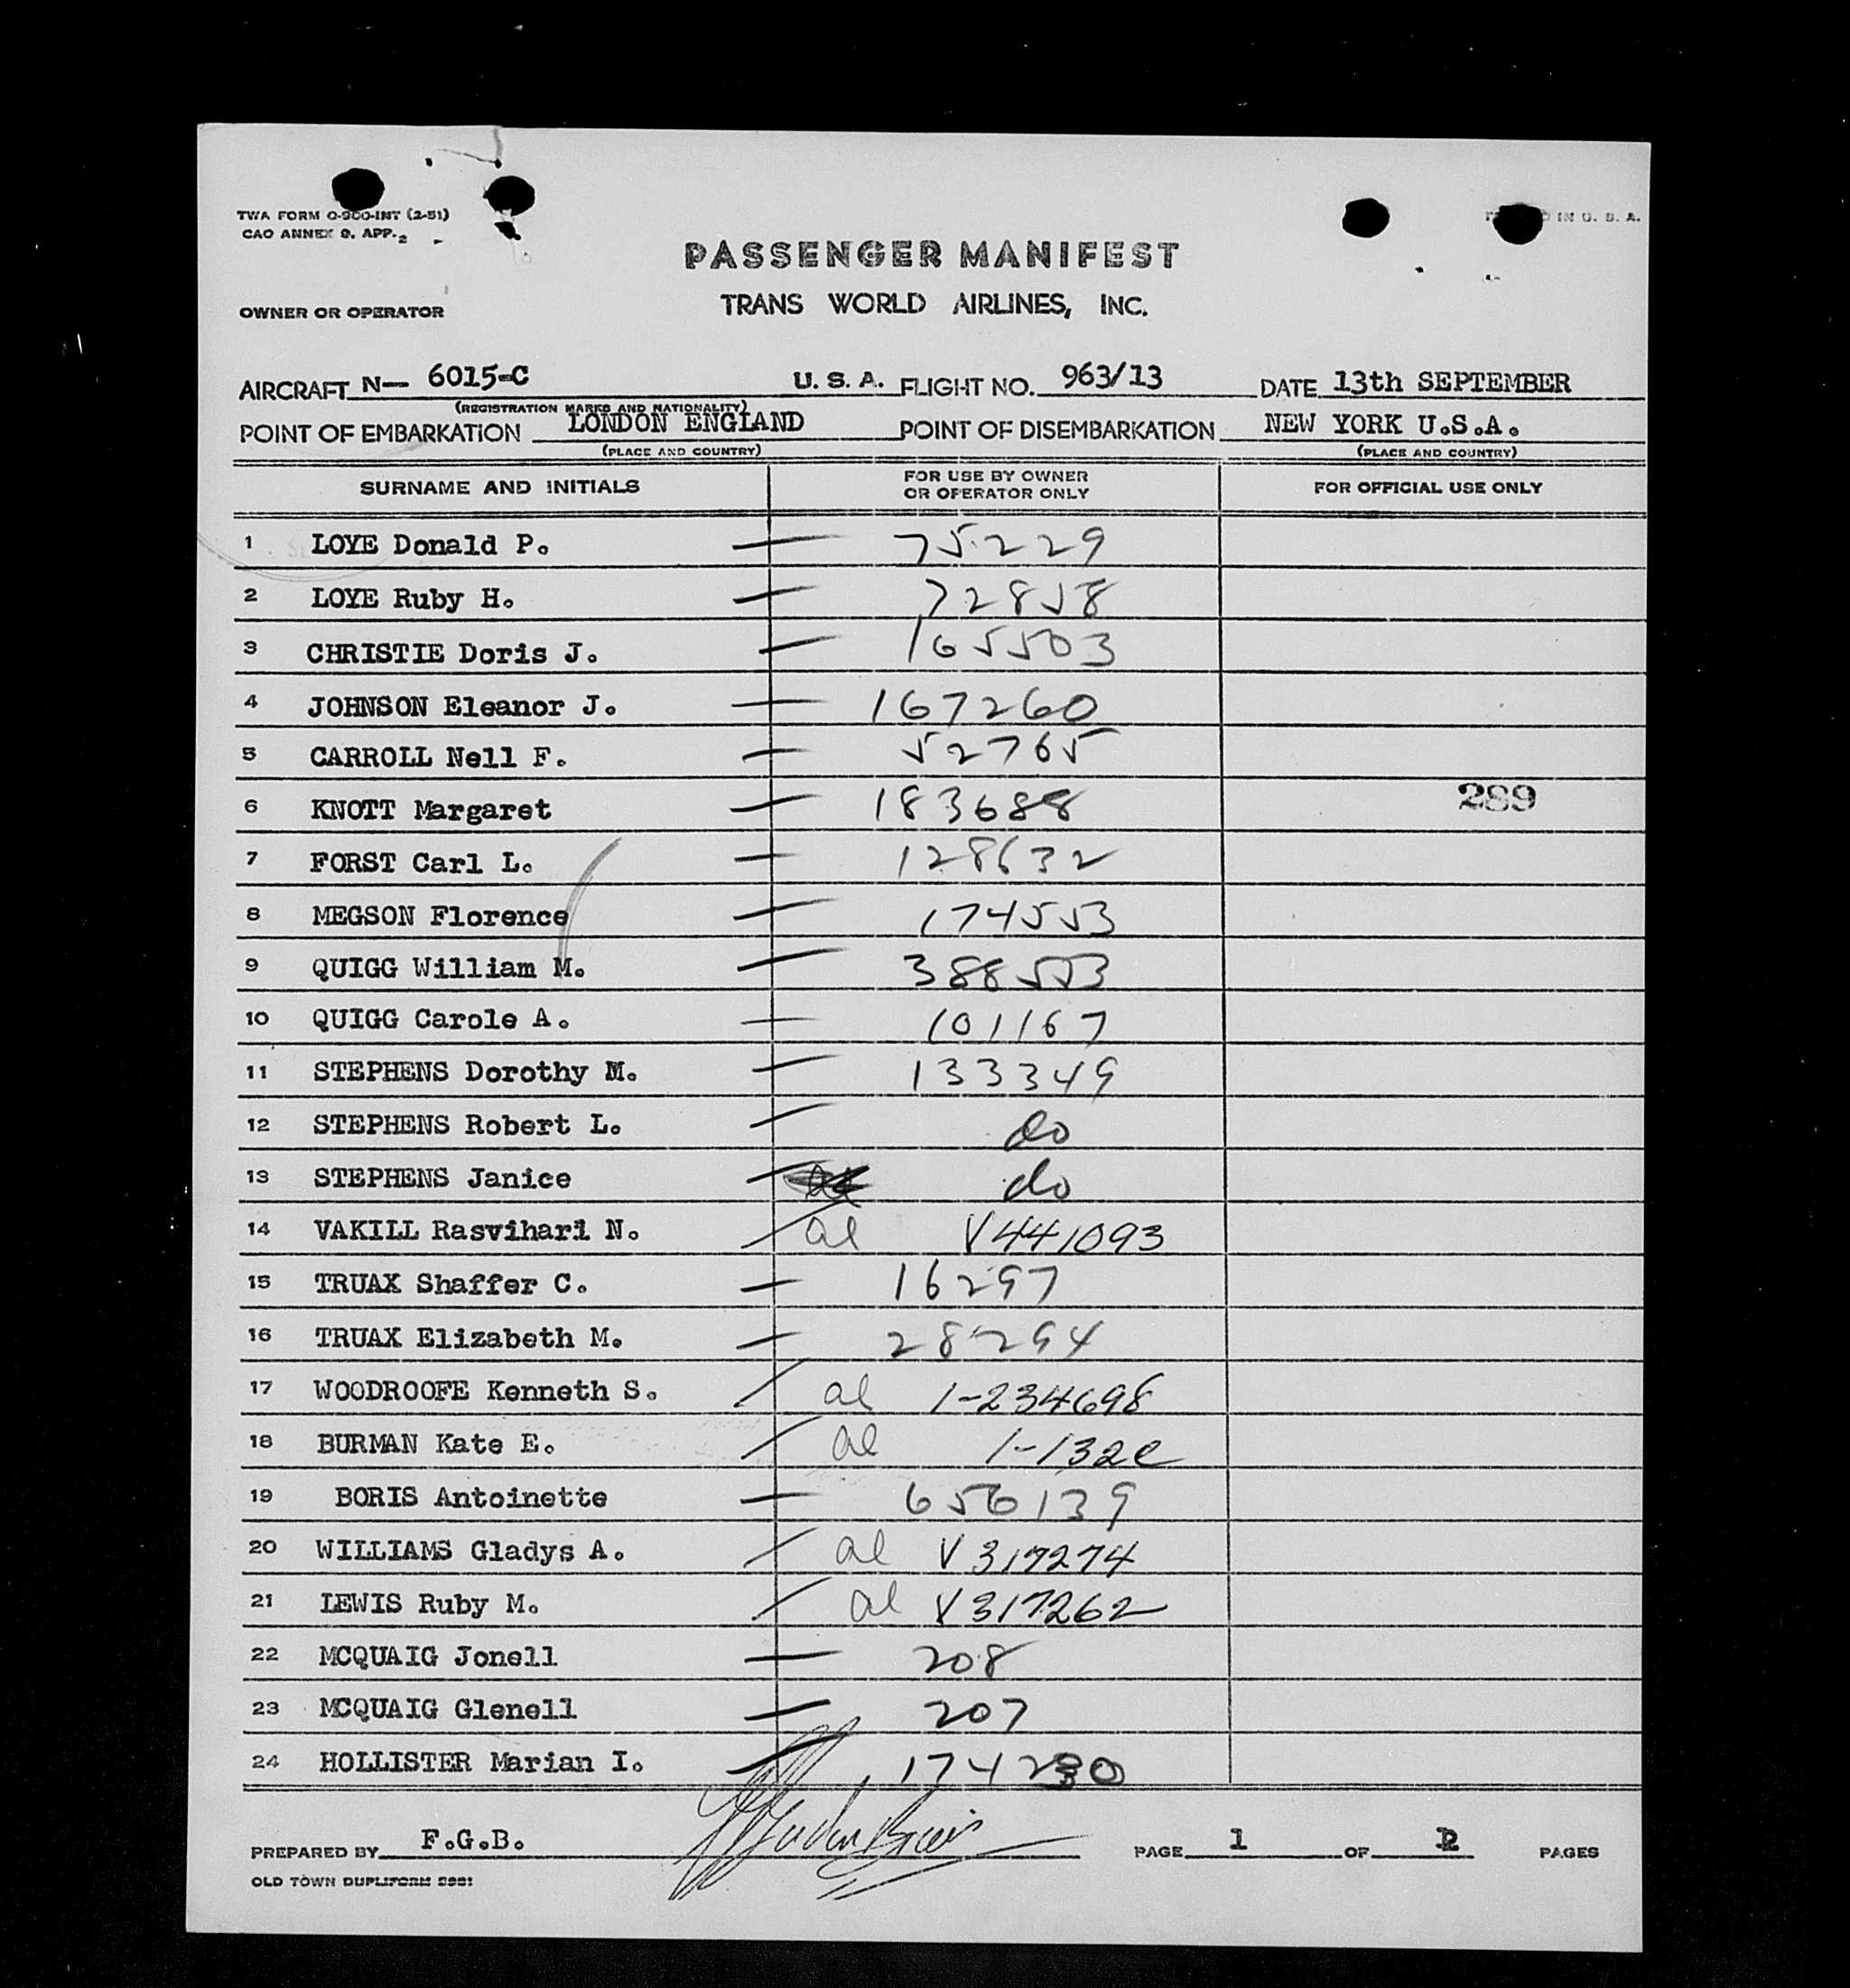 TWA FORM O-900-INT (2-51)
CAO ANNEX 9. APP. 2
IN U. S. A.
PASSENGER MANIFEST
OWNER OR OPERATOR TRANS WORLD AIRLINES, INC.
AIRCRAFT N— 6015-C U. S. A. FLIGHT NO. 963/13 DATE 13th SEPTEMBER
(REGISTRATION MARKS AND NATIONALITY)
POINT OF EMBARKATION LONDON ENGLAND POINT OF DISEMBARKATION NEW YORK U.S.A.
(PLACE AND COUNTRY) (PLACE AND COUNTRY)
SURNAME AND INITIALS FOR USE BY OWNER OR OPERATOR ONLY FOR OFFICIAL USE ONLY
1 LOYE Donald P. — 75229
2 LOYE Ruby H. — 72858
3 CHRISTIE Doris J. — 165503
4 JOHNSON Eleanor J. — 167260
5 CARROLL Nell F. — 52765
6 KNOTT Margaret — 183688 289
7 FORST Carl L. — 128632
8 MEGSON Florence — 174553
9 QUIGG William M. — 388553
10 QUIGG Carole A. — 101167
11 STEPHENS Dorothy M. — 133349
12 STEPHENS Robert L. — do
13 STEPHENS Janice — do
14 VAKILL Rasvihari N. / al V441093
15 TRUAX Shaffer C. — 16297
16 TRUAX Elizabeth M. — 28294
17 WOODROOFE Kenneth S. / al 1-234698
18 BURMAN Kate E. / al 1-132
19 BORIS Antoinette — 656139
20 WILLIAMS Gladys A. / al V317274
21 LEWIS Ruby M. / al V317262
22 MCQUAIG Jonell — 208
23 MCQUAIG Glenell — 207
24 HOLLISTER Marian I. — 174230
PREPARED BY F.G.B. PAGE 1 OF 2 PAGES
OLD TOWN DUPLIFORM